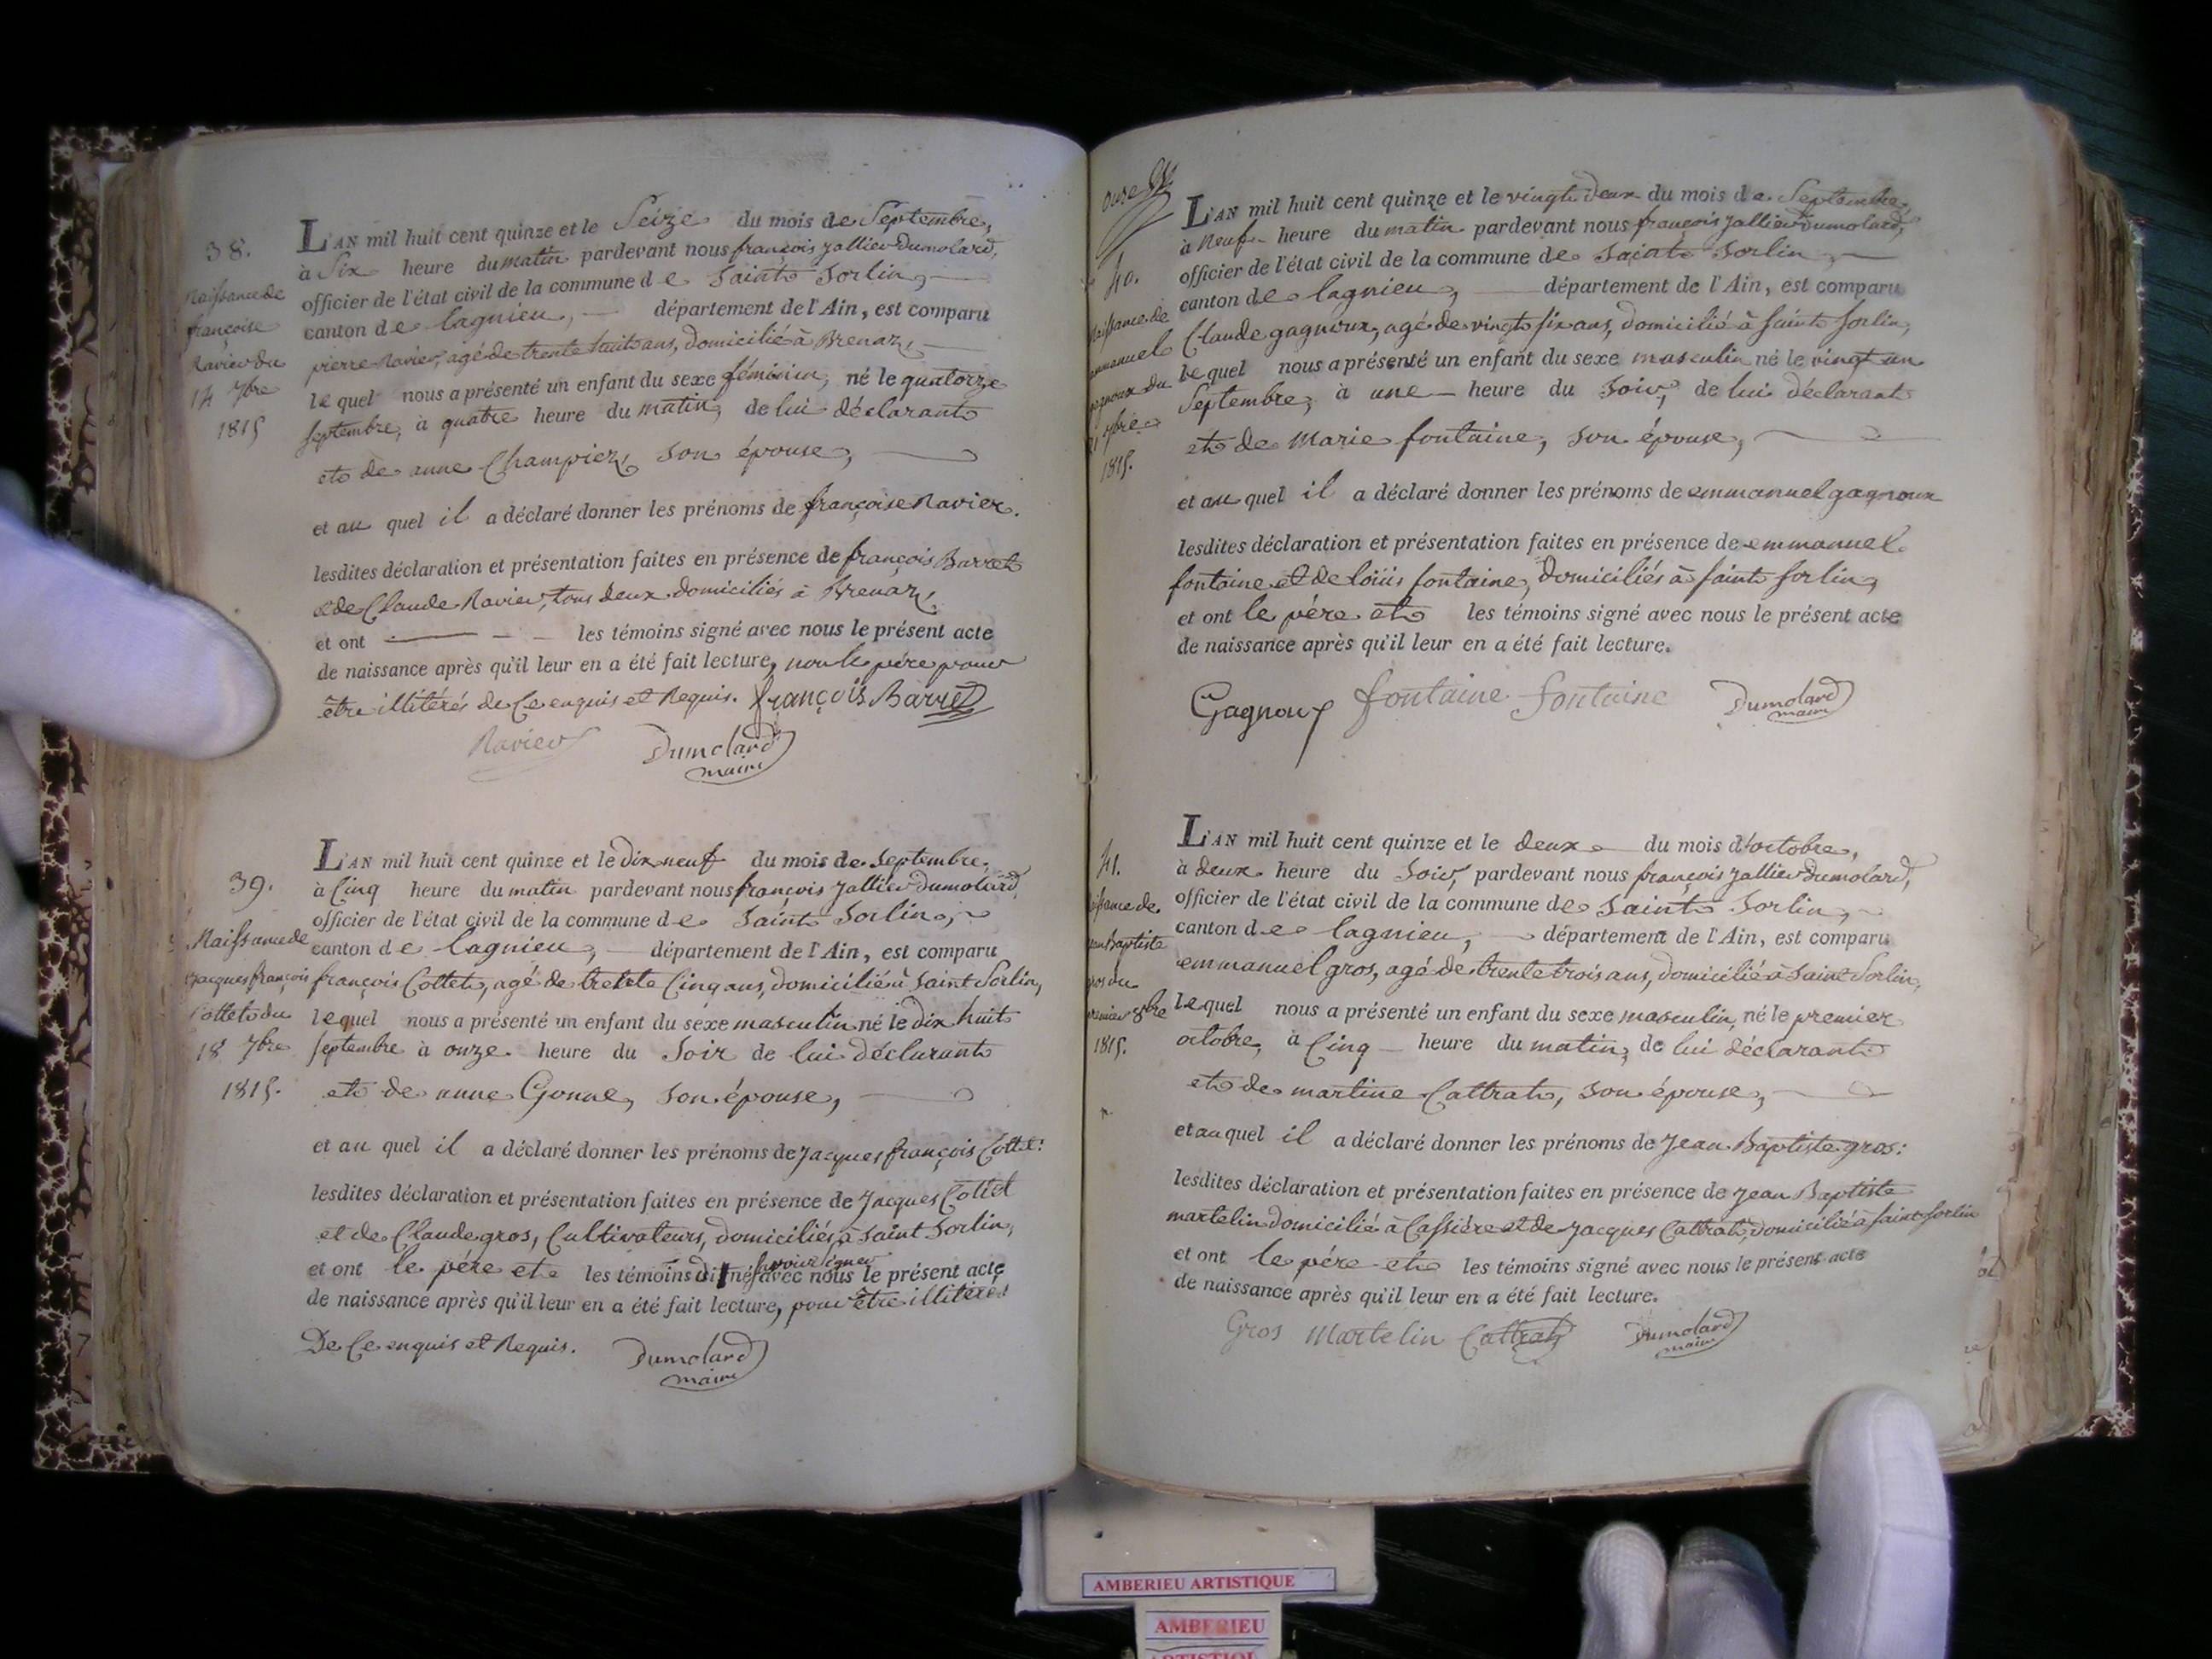 38.
Naissance de
françoise
Ravier du
14 7bre
1815
L'AN mil huit cent quinze et le Seize du mois de Septembre,
à Six heure du matin pardevant nous françois Jallier Dumolard,
officier de l'état civil de la commune de Saint Sorlin,
canton de lagnieu, département de l'Ain, est comparu
pierre Ravier, agé de trente huit ans, Domicilié à Brenaz,
lequel nous a présenté un enfant du sexe féminin, né le quatorze
septembre, à quatre heure du matin, de lui déclarant
et de anne Champier, son épouse,
et au quel il a déclaré donner les prénoms de françoise Ravier.
lesdites déclaration et présentation faites en présence de françois Barret
et de Claude Ravier, tous deux domiciliés à Brenaz,
et ont les témoins signé avec nous le présent acte
de naissance après qu'il leur en a été fait lecture, non le père pour
être illitérés de Ce enquis et Requis. françois Barret
Ravier Dumolard
maire
39.
Naissance de
Jacques françois
Cottet du
18 7bre
1815.
L'AN mil huit cent quinze et le Dix neuf du mois de Septembre,
à Cinq heure du matin pardevant nous françois Jallier Dumolard,
officier de l'état civil de la commune de Saint Sorlin,
canton de lagnieu, département de l'Ain, est comparu
françois Cottet, agé de trente Cinq ans, domicilié à Saint Sorlin,
lequel nous a présenté un enfant du sexe masculin né le Dix huit
septembre à onze heure du Soir de lui déclarant
et de anne Gonne, son épouse,
et au quel il a déclaré donner les prénoms de Jacques françois Cottet:
lesdites déclaration et présentation faites en présence de Jacques Cottet
et de Claude gros, Cultivateurs, domiciliés à Saint Sorlin,
et ont le père et les témoins signé avec nous le présent acte
de naissance après qu'il leur en a été fait lecture, pour être illitérés
De Ce enquis et Requis. Dumolard
maire
40.
Naissance de
emmanuel
gagnoux du
21 7bre
1815.
L'AN mil huit cent quinze et le vingt deux du mois de Septembre,
à Neuf heure du matin pardevant nous françois Jallier Dumolard,
officier de l'état civil de la commune de Saint Sorlin,
canton de lagnieu, département de l'Ain, est comparu
Claude gagnoux, agé de vingt six ans, domicilié à Saint Sorlin,
lequel nous a présenté un enfant du sexe masculin né le vingt un
Septembre, à une heure du Soir, de lui déclarant
et de Marie fontaine, son épouse,
et au quel il a déclaré donner les prénoms de emmanuel gagnoux
lesdites déclaration et présentation faites en présence de emmanuel
fontaine et de loüis fontaine, Domiciliés à Saint Sorlin,
et ont le père et les témoins signé avec nous le présent acte
de naissance après qu'il leur en a été fait lecture.
Gagnoux fontaine fontaine Dumolard
maire
41.
Naissance de
Jean Baptiste
gros du
premier 8bre
1815.
L'AN mil huit cent quinze et le deux du mois d'octobre,
à deux heure du Soir, pardevant nous françois Jallier Dumolard,
officier de l'état civil de la commune de Saint Sorlin,
canton de lagnieu, département de l'Ain, est comparu
emmanuel gros, agé de trente trois ans, domicilié à Saint Sorlin,
lequel nous a présenté un enfant du sexe masculin, né le premier
octobre, à Cinq heure du matin, de lui déclarant
et de martine Cattrat, son épouse,
et au quel il a déclaré donner les prénoms de Jean Baptiste gros:
lesdites déclaration et présentation faites en présence de Jean Baptiste
martelin domicilié à Cassière et de Jacques Cattrat, domicilié à Saint Sorlin
et ont le père et les témoins signé avec nous le présent acte
de naissance après qu'il leur en a été fait lecture.
Gros Martelin Cattrat Dumolard
maire
AMBERIEU ARTISTIQUE
AMBERIEU
ARTISTIQUE